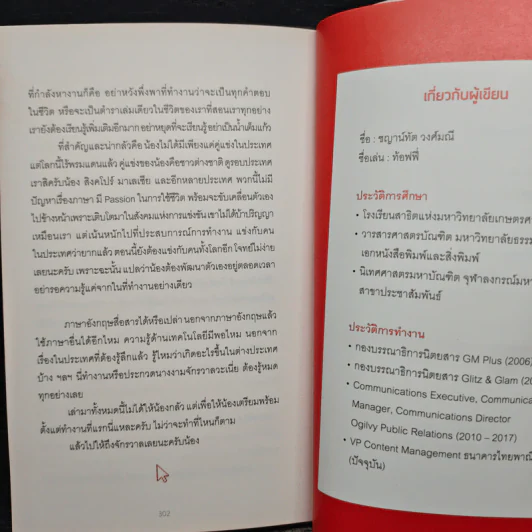 ที่กำลังหางานก็คือ อย่าหวังพึ่งพาที่ทำงานว่าจะเป็นทุกคำตอบ
ในชีวิต หรือจะเป็นตำราเล่มเดียวในชีวิตของเราที่สอนเราทุกอย่าง
เรายังต้องเรียนรู้เพิ่มเติมอีกมาก อย่าหยุดที่จะเรียนรู้ อย่าเป็นน้ำเต็มแก้ว
ที่สำคัญและน่ากลัวคือ น้องไม่ได้มีเพียงแค่คู่แข่งในประเทศ
แต่โลกนี้ไร้พรมแดนแล้ว คู่แข่งของน้องคือชาวต่างชาติ ดูรอบประเทศ
เราสิครับน้อง สิงคโปร์ มาเลเซีย และอีกหลายประเทศ พวกนี้ไม่มี
ปัญหาเรื่องภาษา มี Passion ในการใช้ชีวิต พร้อมจะขับเคลื่อนตัวเอง
ไปข้างหน้าเพราะเติบโตมาในสังคมแห่งการแข่งขัน เขาไม่ได้บ้าปริญญา
เหมือนเรา แต่เน้นหนักไปที่ประสบการณ์การทำงาน แข่งกับคน
ในประเทศว่ายากแล้ว ตอนนี้ยังต้องแข่งกับคนทั้งโลกอีก โจทย์ไม่ง่าย
เลยนะครับ เพราะฉะนั้น แปลว่าน้องต้องพัฒนาตัวเองอยู่ตลอดเวลา
อย่ารอความรู้แค่จากในที่ทำงานอย่างเดียว
ภาษาอังกฤษสื่อสารได้หรือเปล่า นอกจากภาษาอังกฤษแล้ว
ใช้ภาษาอื่นได้อีกไหม ความรู้ด้านเทคโนโลยีมีพอไหม นอกจาก
เรื่องในประเทศที่ต้องรู้ลึกแล้ว รู้ไหมว่าเกิดอะไรขึ้นในต่างประเทศ
บ้าง ฯลฯ นี่ทำงานหรือประกวดนางงามจักรวาลวะเนี่ย ต้องรู้หมด
ทุกอย่างเลย
เล่ามาทั้งหมดนี้ไม่ได้ให้น้องกลัว แต่เพื่อให้น้องเตรียมพร้อม
ตั้งแต่ทำงานที่แรกนี่แหละครับ ไม่ว่าจะทำที่ไหนก็ตาม
แล้วไปให้ถึงจักรวาลเลยนะครับน้อง
302
เกี่ยวกับผู้เขียน
ชื่อ : ชญาน์ทัต วงศ์มณี
ชื่อเล่น : ท้อฟฟี่
ประวัติการศึกษา
• โรงเรียนสาธิตแห่งมหาวิทยาลัยเกษตรศ
• วารสารศาสตรบัณฑิต มหาวิทยาลัยธรรม
เอกหนังสือพิมพ์และสิ่งพิมพ์
• นิเทศศาสตรมหาบัณฑิต จุฬาลงกรณ์มห
สาขาประชาสัมพันธ์
ประวัติการทำงาน
• กองบรรณาธิการนิตยสาร GM Plus (2006)
• กองบรรณาธิการนิตยสาร Glitz & Glam (20
• Communications Executive, Communica
Manager, Communications Director
Ogilvy Public Relations (2010 – 2017)
• VP Content Management ธนาคารไทยพาณิ
(ปัจจุบัน)